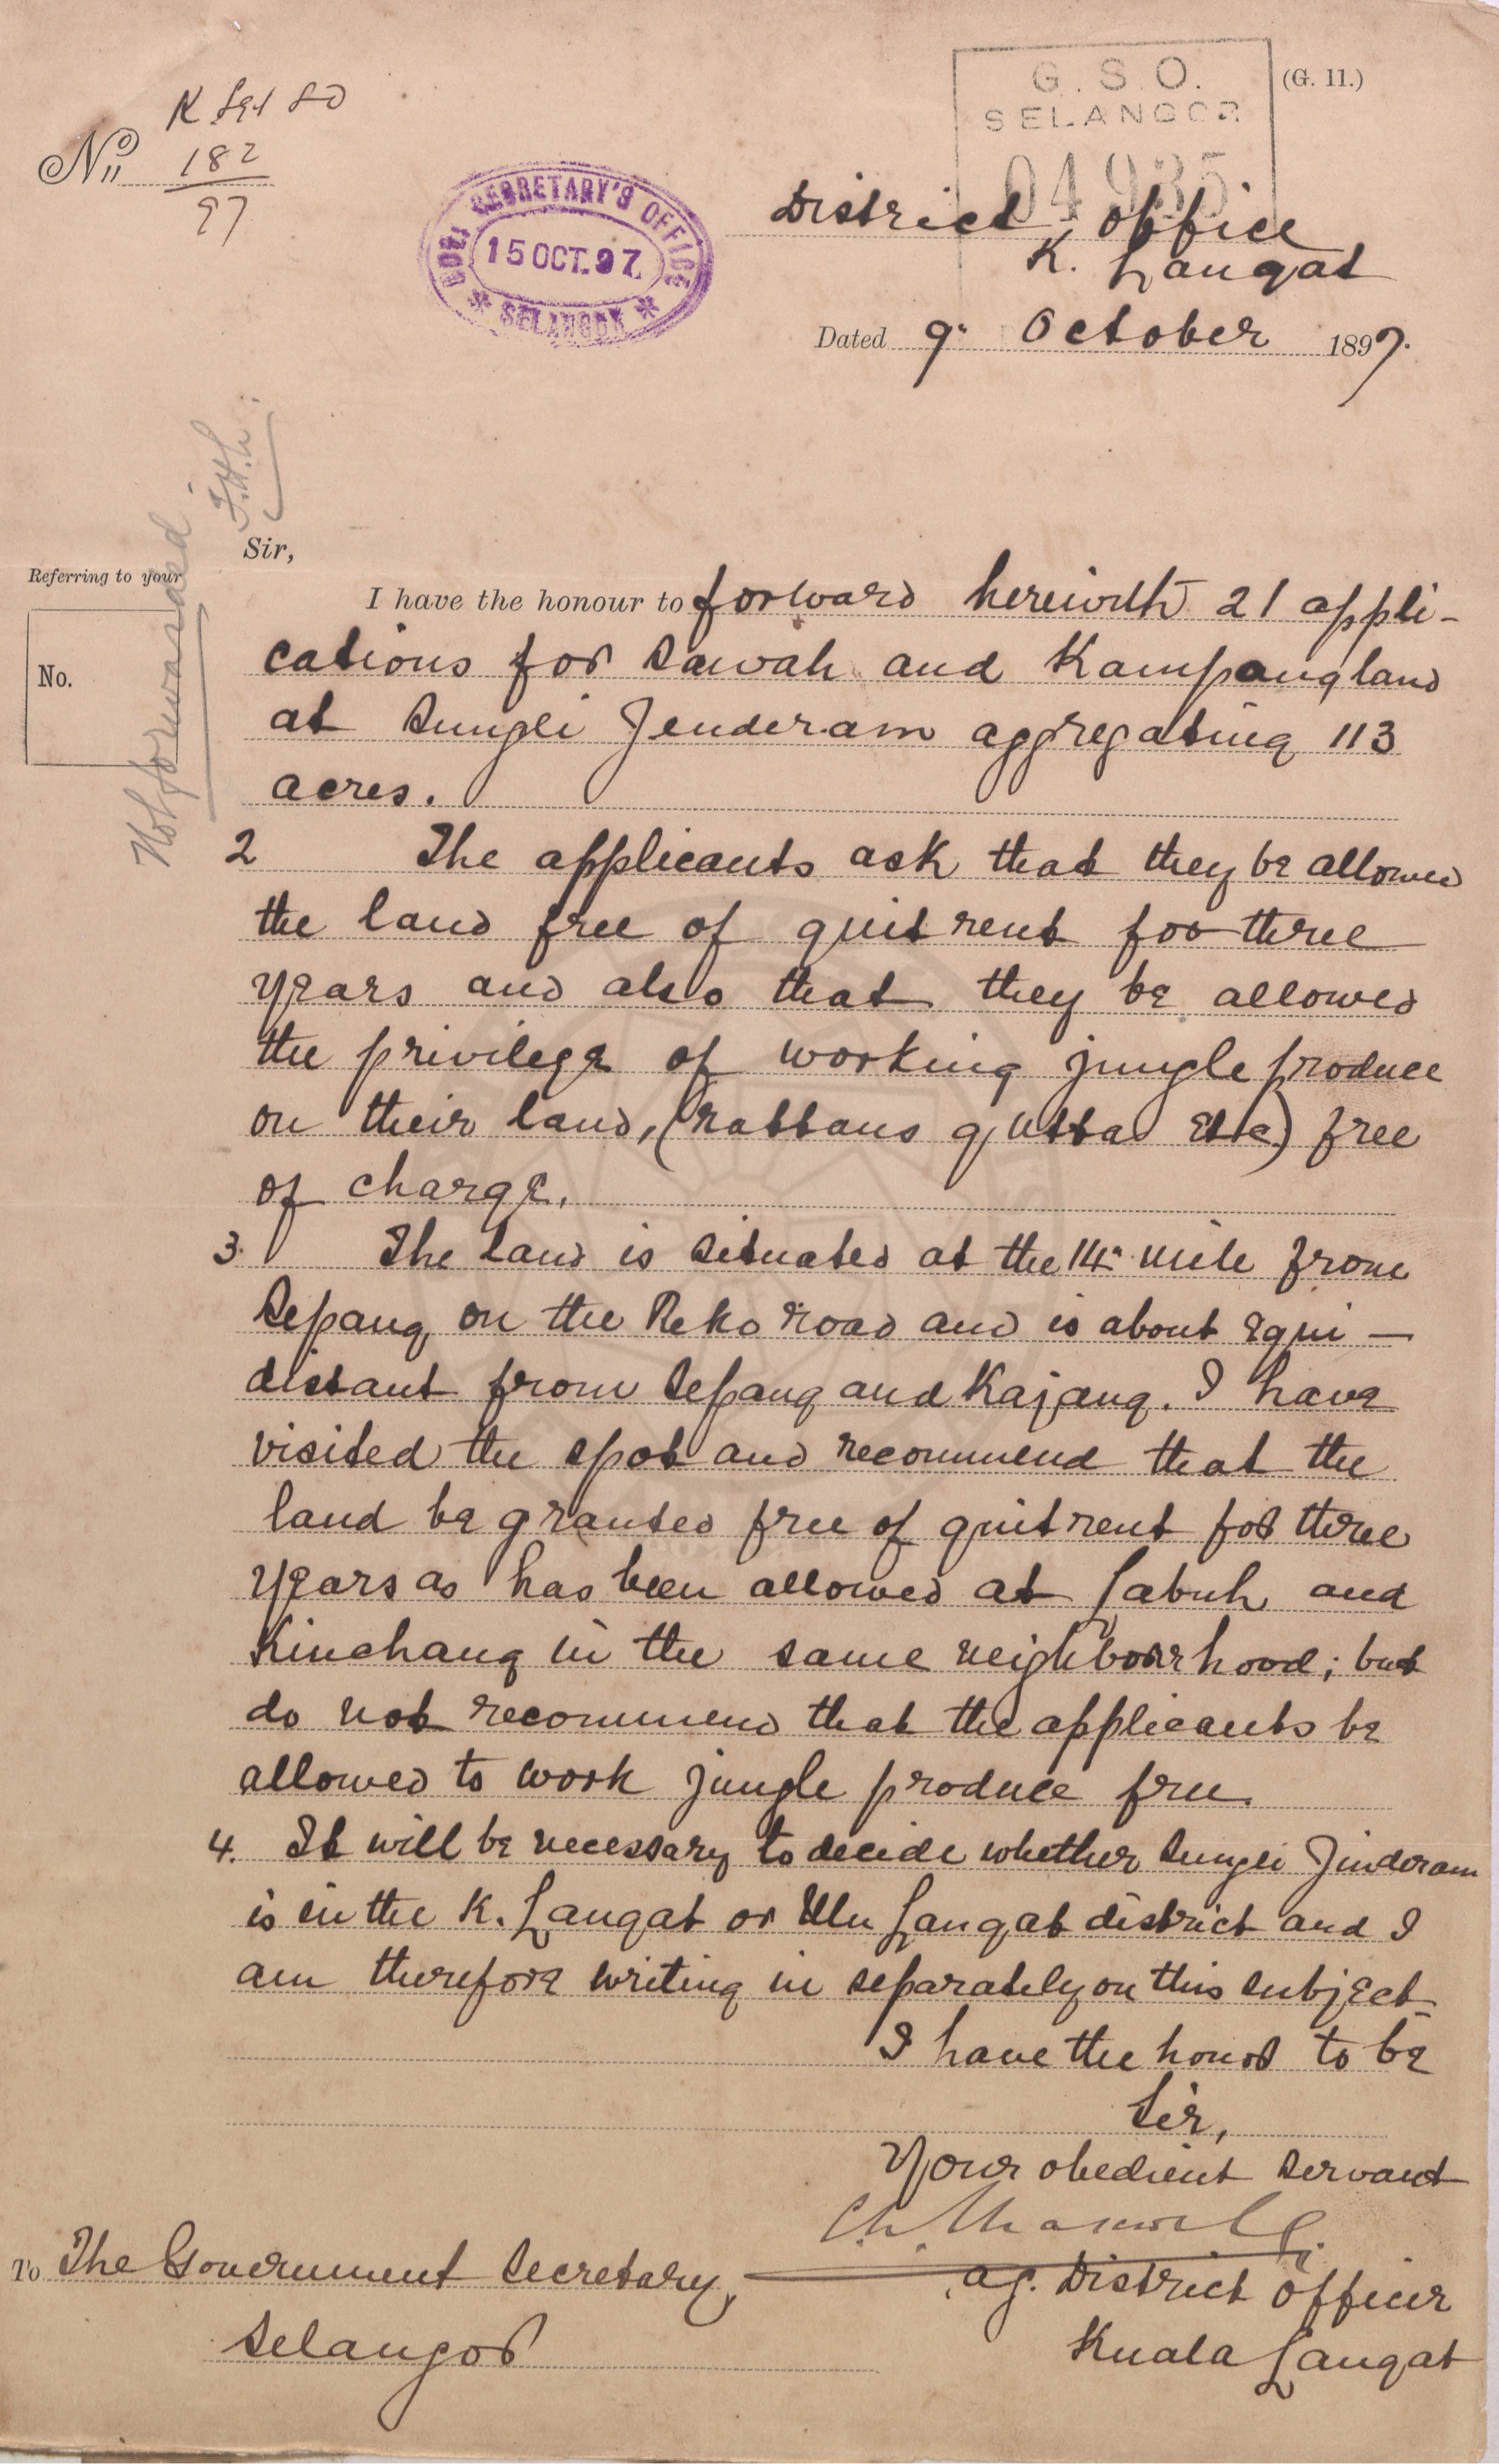 (G. 11.)
G. S. O.
SELANGOR
04935
No. 182
97
GOVT SECRETARY'S OFFICE
15 OCT. 97
SELANGOR
District Office
K. Langat
Dated 9. October 1897.
Not forwarded.
Sir,
Referring to your
No.
I have the honour to forward herewith 21 appli-
cations for Sawah and Kampong land
at Sungei Jenderam aggregating 113
acres.
2 The applicants ask that they be allowed
the land free of quit rent for three
years and also that they be allowed
the privilege of working jungle produce
on their land, (rattans gutta etc) free
of charge.
3. The land is situated at the 14th mile from
Sepang on the Reko road and is about equi-
distant from Sepang and Kajang. I have
visited the spot and recommend that the
land be granted free of quit rent for three
years as has been allowed at Labuh and
Kinchang in the same neighbourhood; but
do not recommend that the applicants be
allowed to work jungle produce free.
4. It will be necessary to decide whether Sungei Jinderam
is in the K. Langat or Ulu Langat district and I
am therefore writing in separately on this subject
I have the honor to be
Sir,
Your obedient servant
Maxwell
ag. District Officer
Kuala Langat
To The Government Secretary,
Selangor